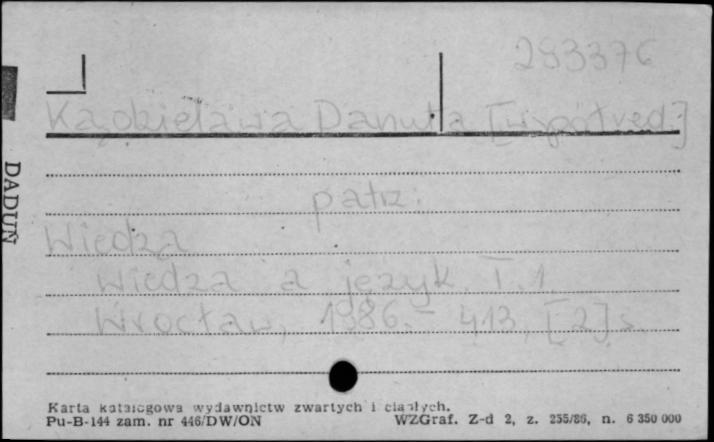 293376
Kądzielawa Danuta [współred.]
patrz:
Wiedza
Wiedza a język. T. 1.
Wrocław, 1986. - 413, [2] s.
DADUŃ
Karta katalogowa wydawnictw zwartych i ciągłych.
Pu-B-144 zam. nr 446/DW/ON WZGraf. Z-d 2, z. 255/86, n. 6 350 000